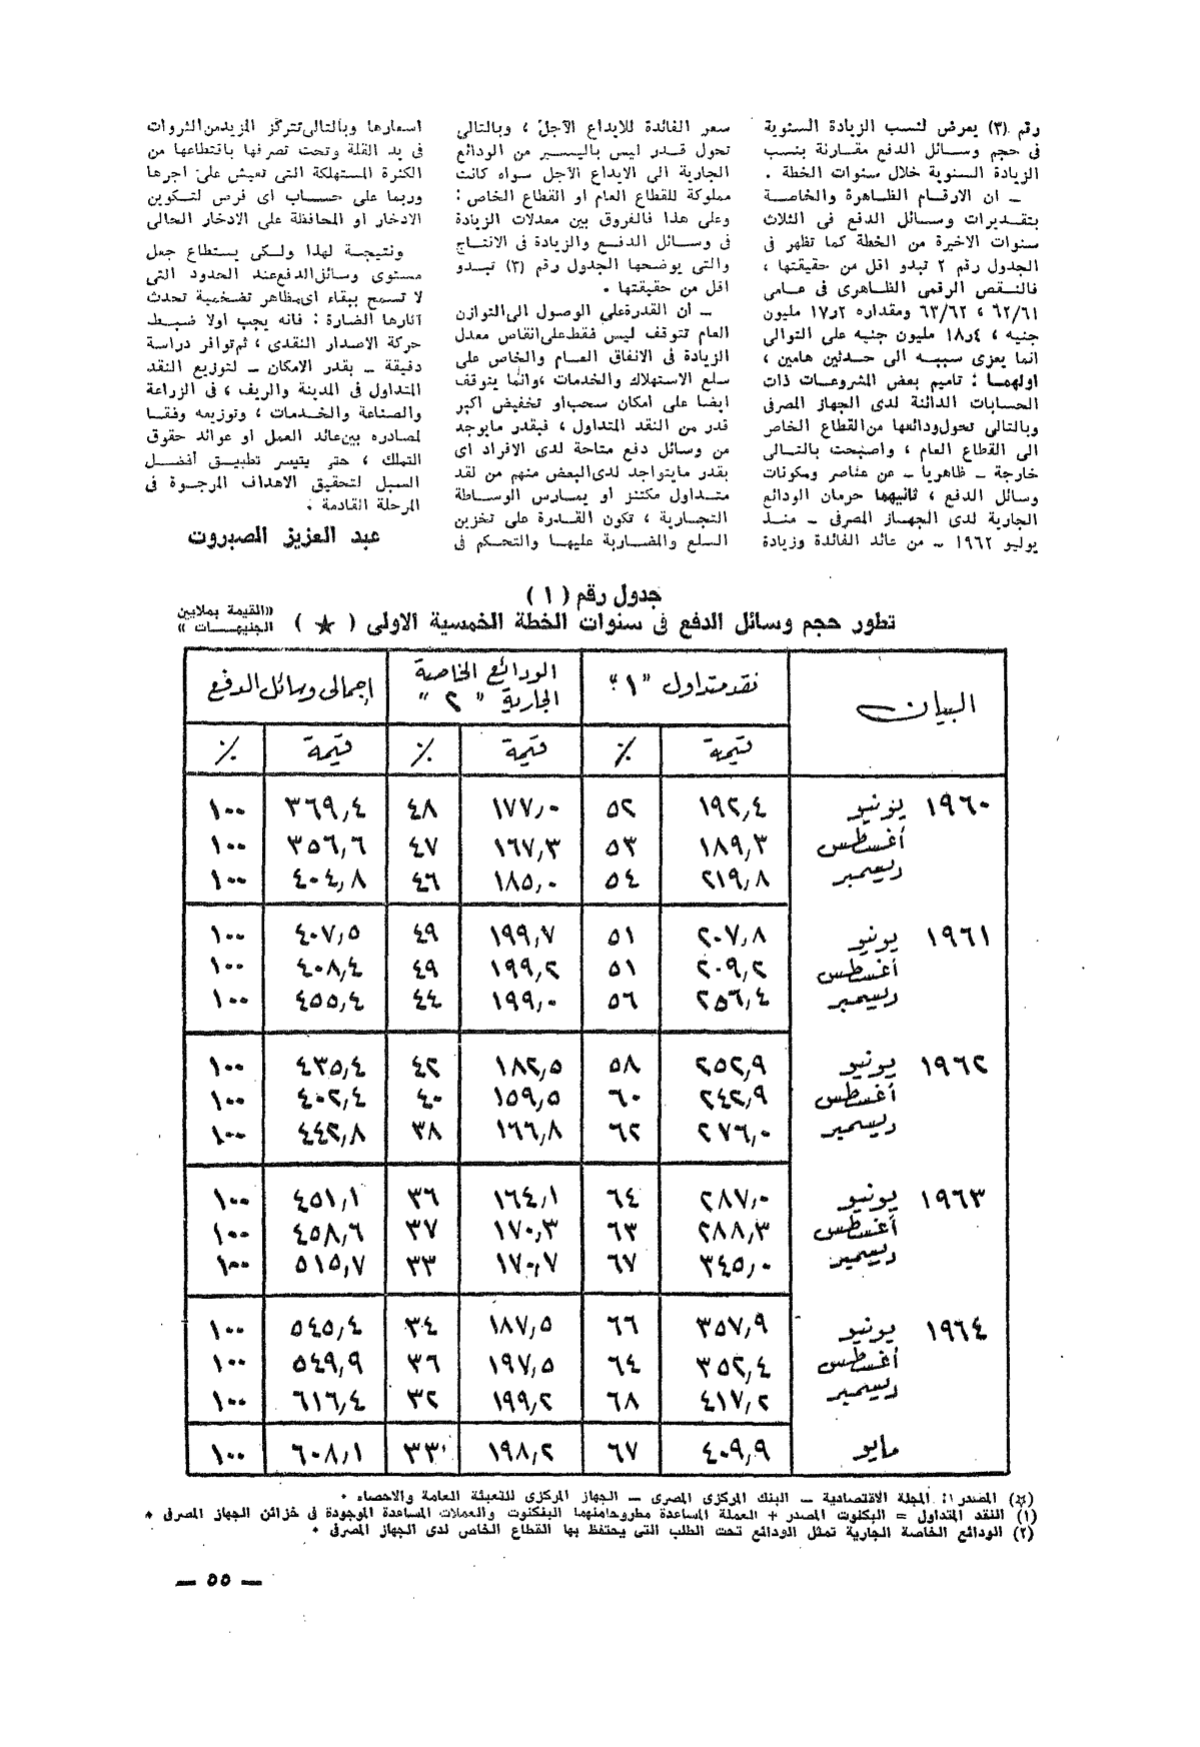 رقم (٣) يعرض لنسب الزيادة السنوية
فى حجم وسائل الدفع مقارنة بنسب
الزيادة السنوية خلال سنوات الخطة .
ـ ان الارقام الظاهرة والخاصة
بتقديرات وسائل الدفع فى الثلاث
سنوات الاخيرة من الخطة كما تظهر فى
الجدول رقم ٢ تبدو اقل من حقيقتها ،
فالنقص الرقمى الظاهرى فى عامى
٦٢/٦١ ، ٦٣/٦٢ ومقداره ١٧٫٢ مليون
جنيه ، ١٨٫٤ مليون جنيه على التوالى
انما يعزى سببه الى حدثين هامين ،
اولهما : تاميم بعض المشروعات ذات
الحسابات الدائنة لدى الجهاز المصرفى
وبالتالى تحول ودائعها من القطاع الخاص
الى القطاع العام ، واصبحت بالتالى
خارجة ـ ظاهريا ـ عن عناصر ومكونات
وسائل الدفع ، ثانيهما حرمان الودائع
الجارية لدى الجهاز المصرفى ـ منذ
يوليو ١٩٦٢ ـ من عائد الفائدة وزيادة
سعر الفائدة للايداع الآجل ، وبالتالى
تحول قدر ليس باليسير من الودائع
الجارية الى الايداع الآجل سواء كانت
مملوكة للقطاع العام او القطاع الخاص :
وعلى هذا فالفروق بين معدلات الزيادة
فى وسائل الدفع والزيادة فى الانتاج
والتى يوضحها الجدول رقم (٣) تبدو
اقل من حقيقتها .
ـ ان القدرة على الوصول الى التوازن
العام تتوقف ليس فقط على انقاص معدل
الزيادة فى الانفاق العام والخاص على
سلع الاستهلاك والخدمات ، وانما يتوقف
ايضا على امكان سحب او تخفيض اكبر
قدر من النقد المتداول ، فبقدر مايوجد
من وسائل دفع متاحة لدى الافراد اى
بقدر مايتواجد لدى البعض منهم من نقد
متداول مكتنز او يمارس الوساطة
التجارية ، تكون القدرة على تخزين
السلع والمضاربة عليها والتحكم فى
اسعارها وبالتالى تتركز المزيد من الثروات
فى يد القلة وتحت تصرفها باقتطاعها من
الكثرة المستهلكة التى تعيش على اجرها
وربما على حساب اى فرص لتكوين
الادخار أو المحافظة على الادخار الحالى
ونتيجة لهذا ولكى يستطاع جعل
مستوى وسائل الدفع عند الحدود التى
لا تسمح ببقاء اى مظاهر تضخمية تحدث
آثارها الضارة : فانه يجب اولا ضبط
حركة الاصدار النقدى ، ثم توافر دراسة
دقيقة ـ بقدر الامكان ـ لتوزيع النقد
المتداول فى المدينة والريف ، فى الزراعة
والصناعة والخدمات ، وتوزيعه وفقا
لمصادره بين عائد العمل او عوائد حقوق
التملك ، حتى يتيسر تطبيق أفضل
السبل لتحقيق الاهداف المرجوة فى
المرحلة القادمة .
عبد العزيز الصبروت
جدول رقم ( ١ )
تطور حجم وسائل الدفع فى سنوات الخطة الخمسية الاولى ( ★ ) «القيمة بملايين
الجنيهات »
البيان نقد متداول "١" الودائع الخاصة الجارية "٢" إجمالى وسائل الدفع
قيمة ٪ قيمة ٪ قيمة ٪
١٩٦٠ يونيو ١٩٢,٤ ٥٢ ١٧٧,٠ ٤٨ ٣٦٩,٤ ١٠٠
أغسطس ١٨٩,٣ ٥٣ ١٦٧,٣ ٤٧ ٣٥٦,٦ ١٠٠
ديسمبر ٢١٩,٨ ٥٤ ١٨٥,٠ ٤٦ ٤٠٤,٨ ١٠٠
١٩٦١ يونيو ٢٠٧,٨ ٥١ ١٩٩,٧ ٤٩ ٤٠٧,٥ ١٠٠
أغسطس ٢٠٩,٢ ٥١ ١٩٩,٢ ٤٩ ٤٠٨,٤ ١٠٠
ديسمبر ٢٥٦,٤ ٥٦ ١٩٩,٠ ٤٤ ٤٥٥,٤ ١٠٠
١٩٦٢ يونيو ٢٥٢,٩ ٥٨ ١٨٢,٥ ٤٢ ٤٣٥,٤ ١٠٠
أغسطس ٢٤٢,٩ ٦٠ ١٥٩,٥ ٤٠ ٤٠٢,٤ ١٠٠
ديسمبر ٢٧٦,٠ ٦٢ ١٦٦,٨ ٣٨ ٤٤٢,٨ ١٠٠
١٩٦٣ يونيو ٢٨٧,٠ ٦٤ ١٦٤,١ ٣٦ ٤٥١,١ ١٠٠
أغسطس ٢٨٨,٣ ٦٣ ١٧٠,٣ ٣٧ ٤٥٨,٦ ١٠٠
ديسمبر ٣٤٥,٠ ٦٧ ١٧٠,٧ ٣٣ ٥١٥,٧ ١٠٠
١٩٦٤ يونيو ٣٥٧,٩ ٦٦ ١٨٧,٥ ٣٤ ٥٤٥,٤ ١٠٠
أغسطس ٣٥٢,٤ ٦٤ ١٩٧,٥ ٣٦ ٥٤٩,٩ ١٠٠
ديسمبر ٤١٧,٢ ٦٨ ١٩٩,٢ ٣٢ ٦١٦,٤ ١٠٠
مايو ٤٠٩,٩ ٦٧ ١٩٨,٢ ٣٣ ٦٠٨,١ ١٠٠
(☆) المصدر : المجلة الاقتصادية ـ البنك المركزى المصرى ـ الجهاز المركزى للتعبئة العامة والاحصاء .
(١) النقد المتداول = البنكنوت المصدر + العملة المساعدة مطروحا منهما البنكنوت والعملات المساعدة الموجودة فى خزائن الجهاز المصرفى .
(٢) الودائع الخاصة الجارية تمثل الودائع تحت الطلب التى يحتفظ بها القطاع الخاص لدى الجهاز المصرفى .
ـ ٥٥ ـ